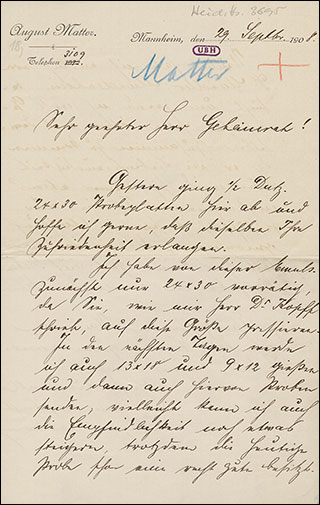 Heidelb. 3695
August Matter.
Mannheim, den 29. Septbr. 1908.
3109
Telephon 1882.
UBH
Matter
Sehr geehrter Herr Geheimrat!
Gestern ging 1/2 Dutz.
24x30 Probeplatten hier ab und
hoffe ich gerne, daß dieselben Ihre
Zufriedenheit erlangen.
Ich habe von dieser Emuls.
zunächst nur 24x30 vorrätig,
da Sie, wie mir Herr Dr Kopff
schrieb, auf diese Größe pressieren.
In den nächsten Tagen werde
ich auch 13x18 und 9x12 gießen
und dann auch hiervon Proben
senden, vielleicht kann ich auch
die Empfindlichkeit noch etwas
steigern, trotzdem die heutige
Probe schon eine recht gute besitzt.